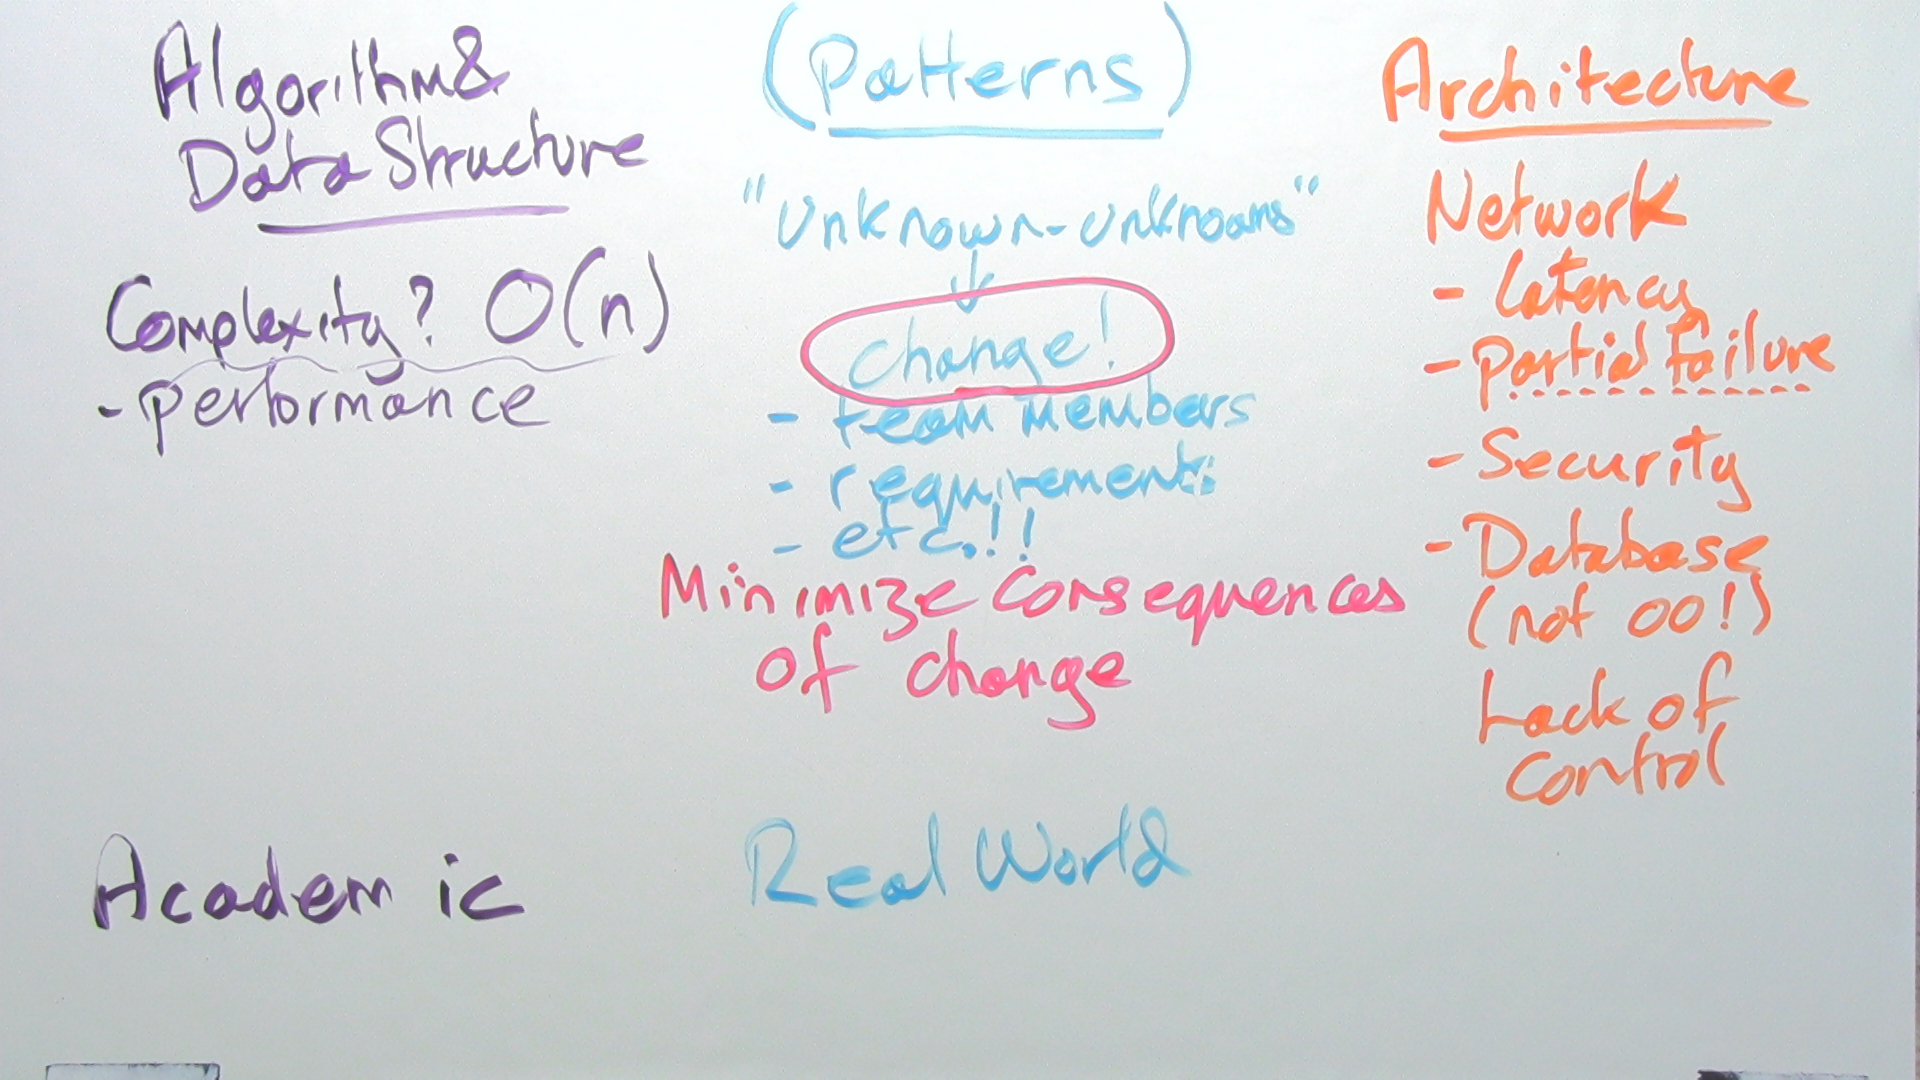 Algorithm &
Data Structure
Complexity? O(n)
- performance
Academic
(Patterns)
"Unknown-unknowns"
change!
- team members
- requirements
- etc.!!
Minimize Consequences
of change
Real World
Architecture
Network
- Latency
- Partial failure
- Security
- Database
(not OO!)
Lack of
Control